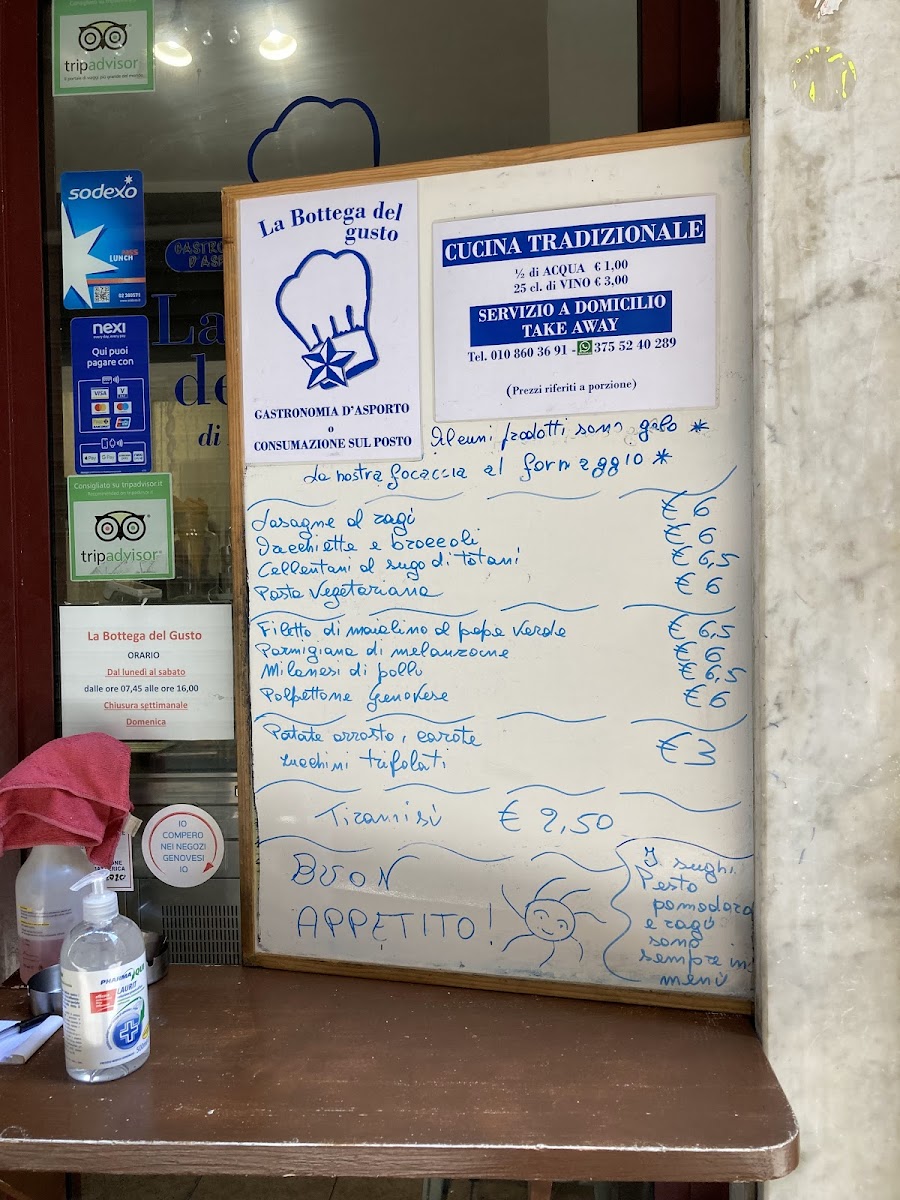 Consigliato su tripadvisor.it
tripadvisor
sodexo
PASS
LUNCH
nexi
every day, every pay
Qui puoi
pagare con
VISA
Pay
G Pay
Consigliato su tripadvisor.it
tripadvisor
La Bottega del Gusto
ORARIO
Dal lunedì al sabato
dalle ore 07,45 alle ore 16,00
Chiusura settimanale
Domenica
IO
COMPERO
NEI NEGOZI
GENOVESI
IO
La
de
di
La Bottega del
gusto
GASTRONOMIA D'ASPORTO
o
CONSUMAZIONE SUL POSTO
CUCINA TRADIZIONALE
½ di ACQUA € 1,00
25 cl. di VINO € 3,00
SERVIZIO A DOMICILIO
TAKE AWAY
Tel. 010 860 36 91 - 375 52 40 289
(Prezzi riferiti a porzione)
Alcuni prodotti sono gelo *
La nostra focaccia al formaggio *
Lasagne al ragù € 6
Orecchiette e broccoli € 6
Cellentani al sugo di totani € 6,5
Pasta Vegetariana € 6
Filetto di maialino al pepe verde € 6,5
Parmigiana di melanzane € 6
Milanesi di pollo € 6,5
Polpettone Genovese € 6
Patate arrosto, carote
zucchini trifolati € 3
Tiramisù € 2,50
BUON
APPETITO!
I sughi
Pesto
pomodoro
e ragù
sono
sempre in
menù
PHARMA
LAURIT